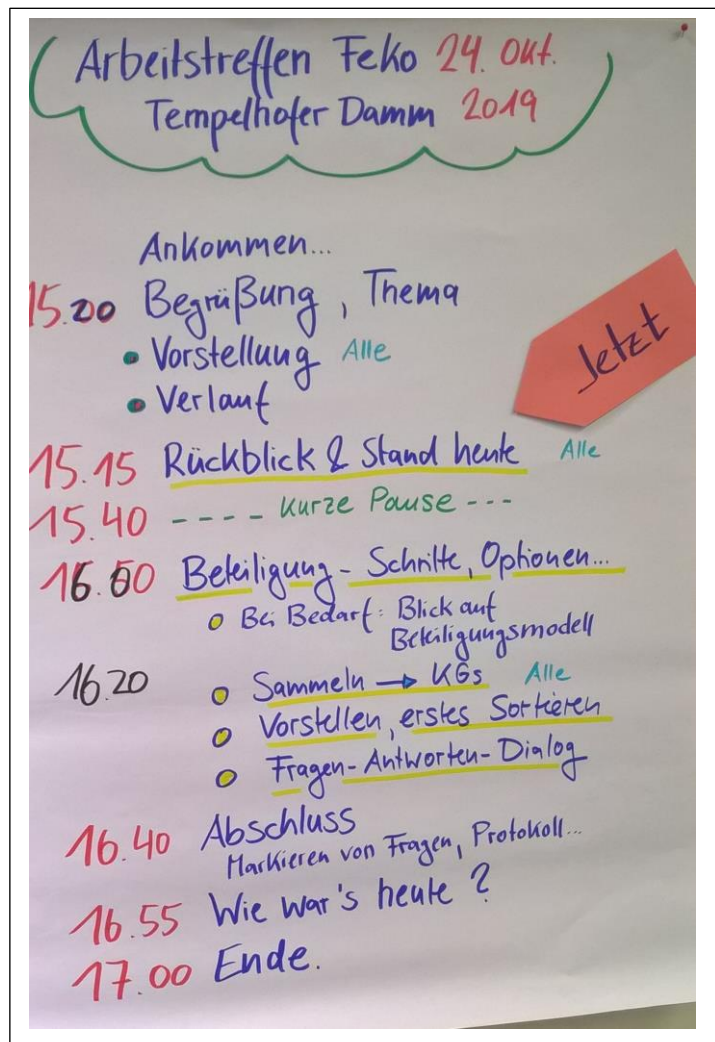 Arbeitstreffen Feko 24. Okt.
Tempelhofer Damm 2019
Ankommen...
15.00 Begrüßung, Thema
• Vorstellung Alle
• Verlauf
Jetzt
15.15 Rückblick & Stand heute Alle
15.40 ---- Kurze Pause ---
16.00 Beteiligung - Schritte, Optionen...
Bei Bedarf: Blick auf
Beteiligungsmodell
16.20 Sammeln → KGs Alle
Vorstellen, erstes Sortieren
Fragen-Antworten-Dialog
16.40 Abschluss
Markieren von Fragen, Protokoll...
16.55 Wie war's heute?
17.00 Ende.